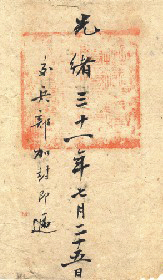 光緒三十一年七月二十五日
交兵部加封即遞